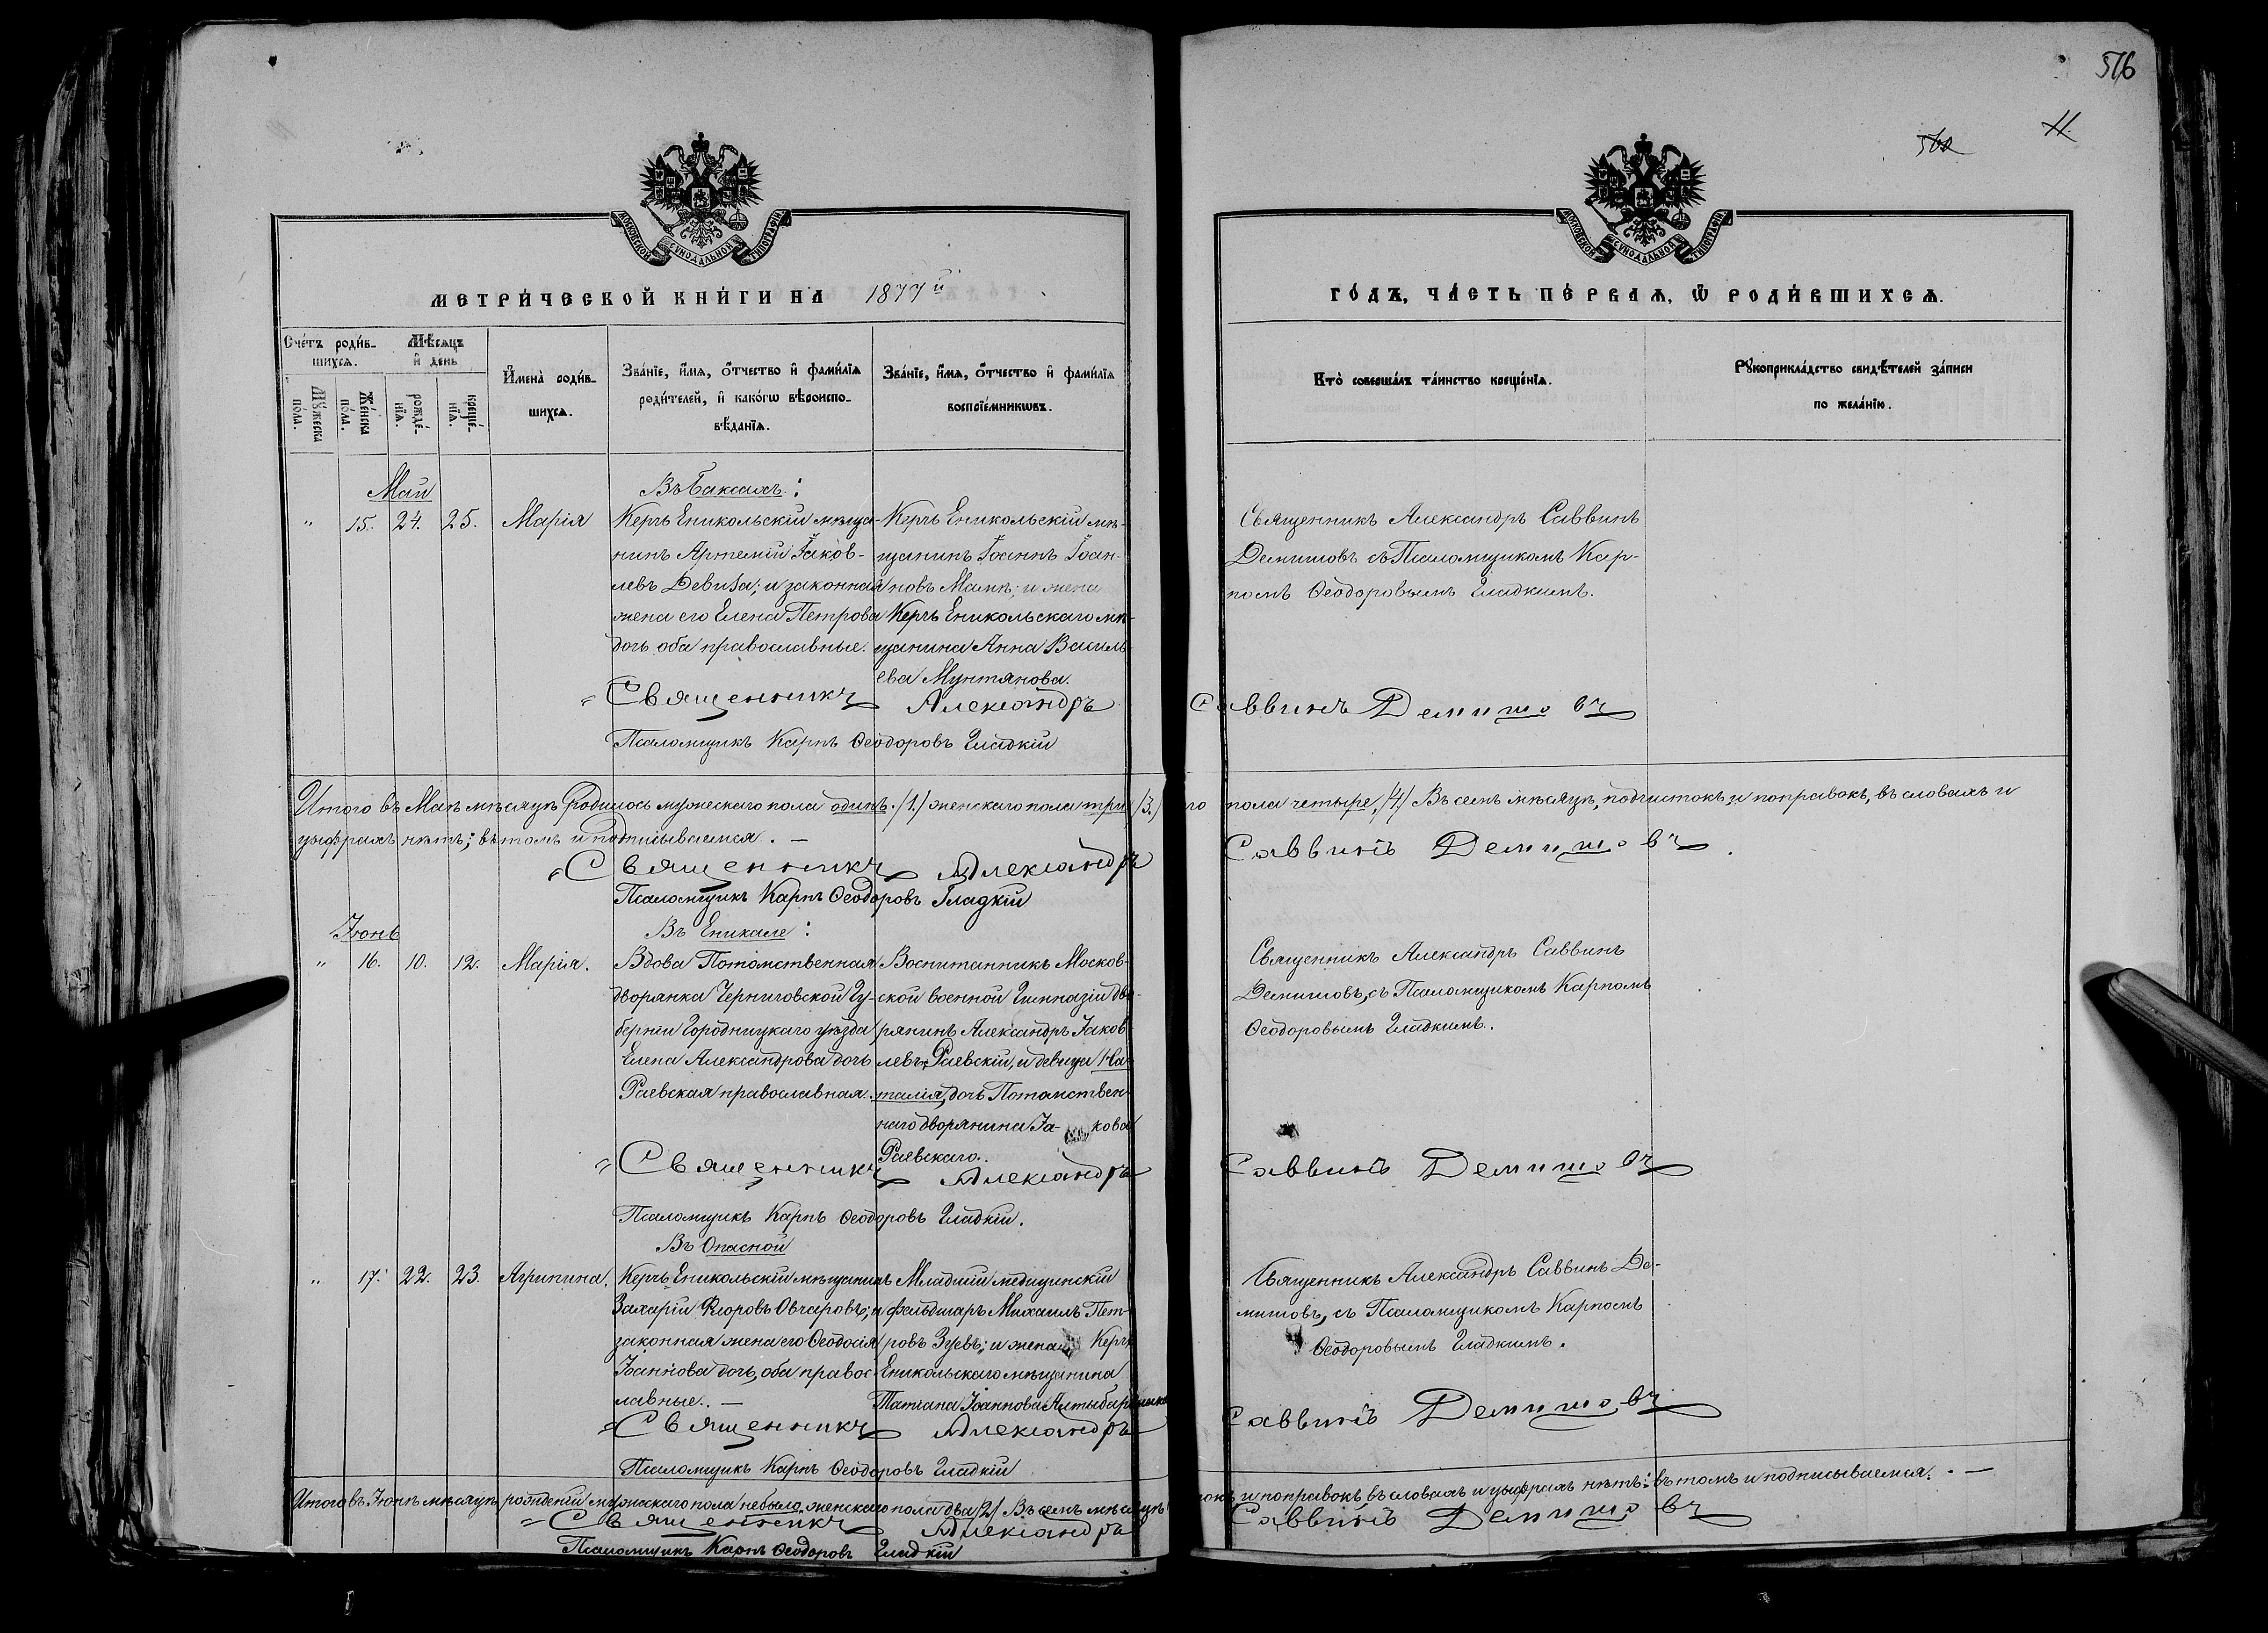 576
11.
562
МОСКОВСКОЙ СѴНОДАЛЬНОЙ ТИПОГРАФІИ
МОСКОВСКОЙ СѴНОДАЛЬНОЙ ТИПОГРАФІИ
МЕТРИ́ЧЕСКОЙ КНИ́ГИ НА 1877й
ГО́ДЪ, ЧА́СТЬ ПЕ́РВАѦ, Ѡ҆ РОДИ́ВШИХСѦ.
Сче́тъ роди́в-
шихсѧ.
Мѣ́сѧцъ
и҆ день
Мꙋ́жеска
по́ла.
Же́нска
по́ла.
рожде́-
нїѧ.
креще́-
нїѧ.
И҆мена̀ роди́в-
шихсѧ.
Зва́нїе, и҆́мѧ, ѻ҆́тчество и҆ фами́лїѧ
роди́телей, и҆ како́гѡ вѣроиспо-
вѣ́данїѧ.
Зва́нїе, и҆́мѧ, ѻ҆́тчество и҆ фами́лїѧ
воспрїе́мникѡвъ.
Кто̀ соверша́лъ та́инство креще́нїѧ.
Рꙋкоприкла́дство свидѣ́телей за́писи
по жела́нїю.
Май
Въ Баксахъ:
" 15. 24. 25. Марія
Керчь Еникольскій мѣща-
нинъ Артемій Іаков-
левъ Девиза; и законная
жена его Елена Петрова
дочь оба православные.
Керчь Еникольскій мѣ-
щанинъ Іоаннъ Іоан-
новъ Мамъ; и жена
Керчь Еникольскаго мѣ-
щанина Анна Василь-
ева Мунтянова.
Священникъ Александръ Саввинъ
Демишовъ съ Псаломщикомъ Кар-
помъ Ѳеодоровымъ Гладкимъ.
Священникъ Александръ Саввинъ Демишовъ
Псаломщикъ Карпъ Ѳеодоровъ Гладкій
Итого въ Маѣ мѣсяцѣ родилось мужескаго пола одинъ /1./ женскаго пола три /3./ го пола четыре, /4./ Въ семъ мѣсяцѣ, подчистокъ и поправокъ, въ словахъ и
цыфрахъ нѣтъ; въ томъ и подписываемся. —
Священникъ Александръ Саввинъ Демишовъ.
Псаломщикъ Карпъ Ѳеодоровъ Гладкій
Іюнь
Въ Еникале:
" 16. 10. 12. Марія.
Вдова Потомственная
дворянка Черниговской Гу-
берніи Городницкаго уѣзда
Елена Александрова дочь
Раевская православная.
Воспитанникъ Москов-
ской военной Гимназіи дво-
рянинъ Александръ Іаков-
левъ Раевскій, и девица На-
талія, дочь Потомствен-
наго дворянина Іа- кова
Раевскаго.
Священникъ Александръ Саввинъ
Демишовъ, съ Псаломщикомъ Карпомъ
Ѳеодоровымъ Гладкимъ.
Священникъ Александръ Саввинъ Демишовъ
Псаломщикъ Карпъ Ѳеодоровъ Гладкій.
Въ Опасной
" 17. 22. 23. Агрипина.
Керчь Еникольскій мѣщанинъ
Захарій Ѳлоровъ Овчаровъ; и
законная жена его Ѳеодосія
Іоаннова дочь, оба правос-
лавные. —
Младшій медицинскій
фельдшаръ Михаилъ Пет-
ровъ Зуевъ; и жена Керчь
Еникольскаго мѣщанина
Татіана Іоаннова
Священникъ Александръ Саввинъ Де-
мишовъ, съ Псаломщикомъ Карпомъ
Ѳеодоровымъ Гладкимъ.
Священникъ Александръ Саввинъ Демишовъ
Псаломщикъ Карпъ Ѳеодоровъ Гладкій
Итого въ Іюнѣ мѣсяцѣ рожденій мужескаго пола небыло, женскаго пола два /2/ Въ семъ мѣсяцѣ токъ и поправокъ въ словахъ и цыфрахъ нѣтъ: въ томъ и подписываемся. —
Священникъ Александръ Саввинъ Демишовъ
Псаломщикъ Карпъ Ѳеодоровъ Гладкій